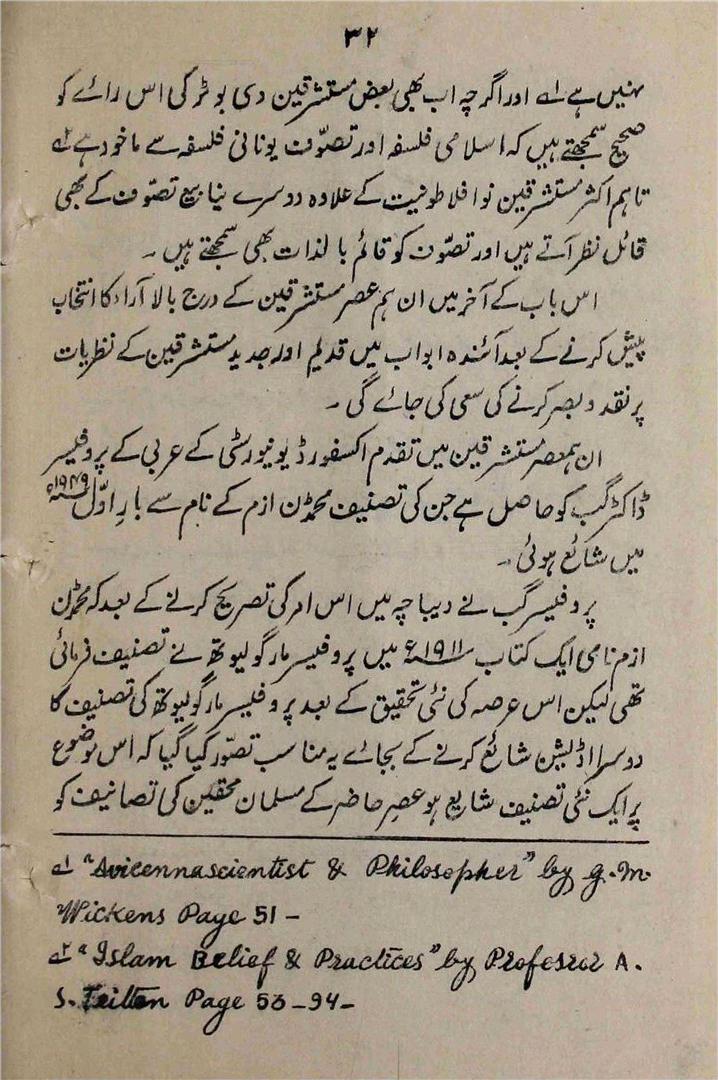 ۳۲
نہیں ہے ؎۱ اور اگرچہ اب بھی بعض مستشرقین دی بوئر کی اس رائے کو
صحیح سمجھتے ہیں کہ اسلامی فلسفہ اور تصوّف یونانی فلسفہ سے ماخوذ ہے ؎۲
تاہم اکثر مستشرقین نوافلاطونیت کے علاوہ دوسرے ینابیع تصوّف کے بھی
قائل نظر آتے ہیں اور تصوّف کو قائم بالذات بھی سمجھتے ہیں ۔
اس باب کے آخر میں ان ہم عصر مستشرقین کے درج بالا آراء کا انتخاب
پیش کرنے کے بعد آئندہ ابواب میں قدیم اور جدید مستشرقین کے نظریات
پر نقد و بصر کرنے کی سعی کی جائے گی ۔
ان ہمعصر مستشرقین میں تقدم اکسفورڈ یونیورسٹی کے عربی کے پروفیسر
ڈاکٹر گب کو حاصل ہے جن کی تصنیف محمڈن ازم کے نام سے بارِ اوّل ۱۹۴۹ء
میں شائع ہوئی ۔
پروفیسر گب نے دیباچہ میں اس امر کی تصریح کرنے کے بعد کہ محمڈن
ازم نامی ایک کتاب ۱۹۱۱ء میں پروفیسر مارگولیوتھ نے تصنیف فرمائی
تھی لیکن اس عرصہ کی نئی تحقیق کے بعد پروفیسر مارگولیوتھ کی تصنیف کا
دوسرا اڈیشن شائع کرنے کے بجائے یہ مناسب تصوّر کیا گیا کہ اس موضوع
پر ایک نئی تصنیف شایع ہو عصرِ حاضر کے مسلمان محققین کی تصانیف کو
؎۱ "Avicennascientist & Philosopher" by G. M.
Wickens Page 51 –
؎۲ "Islam Belief & Practices" by Professor A.
S. Tritten Page 53 – 94 –